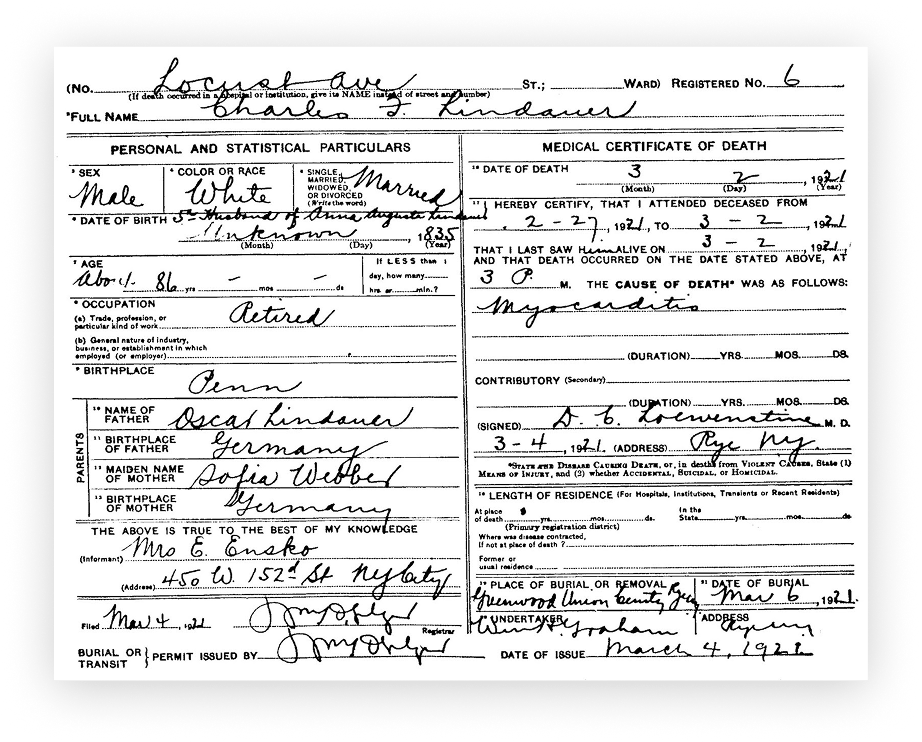 (No. Locust Ave ST.; WARD) REGISTERED NO. 6
(If death occurred in a hospital or institution, give its NAME instead of street and number)
*FULL NAME Charles F. Lindauer
PERSONAL AND STATISTICAL PARTICULARS
* SEX
Male
* COLOR OR RACE
White
* SINGLE,
MARRIED,
WIDOWED,
OR DIVORCED
(Write the word)
Married
* DATE OF BIRTH 5a Husband of Anna Augusta Lindauer
Unknown , 1835
(Month) (Day) (Year)
7 AGE
About 86 yrs – mos – ds
If LESS than 1
day, how many
hrs or min.?
* OCCUPATION
(a) Trade, profession, or
particular kind of work Retired
(b) General nature of industry,
business, or establishment in which
employed (or employer)
* BIRTHPLACE
Penn
PARENTS
10 NAME OF
FATHER Oscar Lindauer
11 BIRTHPLACE
OF FATHER Germany
12 MAIDEN NAME
OF MOTHER Sofia Webber
13 BIRTHPLACE
OF MOTHER Germany
THE ABOVE IS TRUE TO THE BEST OF MY KNOWLEDGE
(Informant) Mrs E. Ensko
(Address) 450 W. 152d St NyCity
Filed Mar 4, 1921
Registrar
BURIAL OR TRANSIT } PERMIT ISSUED BY
MEDICAL CERTIFICATE OF DEATH
16 DATE OF DEATH 3 2 , 1921
(Month) (Day) (Year)
17 I HEREBY CERTIFY, THAT I ATTENDED DECEASED FROM
2 - 27, 1921, TO 3 - 2, 1921
THAT I LAST SAW Him ALIVE ON 3 - 2, 1921,
AND THAT DEATH OCCURRED ON THE DATE STATED ABOVE, AT
3 P. M. THE CAUSE OF DEATH* WAS AS FOLLOWS:
Myocarditis
(DURATION) YRS. MOS. DS.
CONTRIBUTORY (Secondary)
(DURATION) YRS. MOS. DS.
(SIGNED) D. C. Loewenstine M. D.
3-4, 1921 (ADDRESS) Rye Ny.
*STATE THE DISEASE CAUSING DEATH, or, in deaths from VIOLENT CAUSES, State (1)
MEANS OF INJURY, and (2) whether ACCIDENTAL, SUICIDAL, or HOMICIDAL.
18 LENGTH OF RESIDENCE (For Hospitals, Institutions, Transients or Recent Residents)
At place
of death yrs. mos. ds.
In the
State yrs. mos. ds.
(Primary registration district)
Where was disease contracted,
If not at place of death ?
Former or
usual residence
19 PLACE OF BURIAL OR REMOVAL
Greenwood Union Cemty Rye
21 DATE OF BURIAL
Mar 6, 1921.
UNDERTAKER
Wm H. Graham
ADDRESS
DATE OF ISSUE March 4, 1921